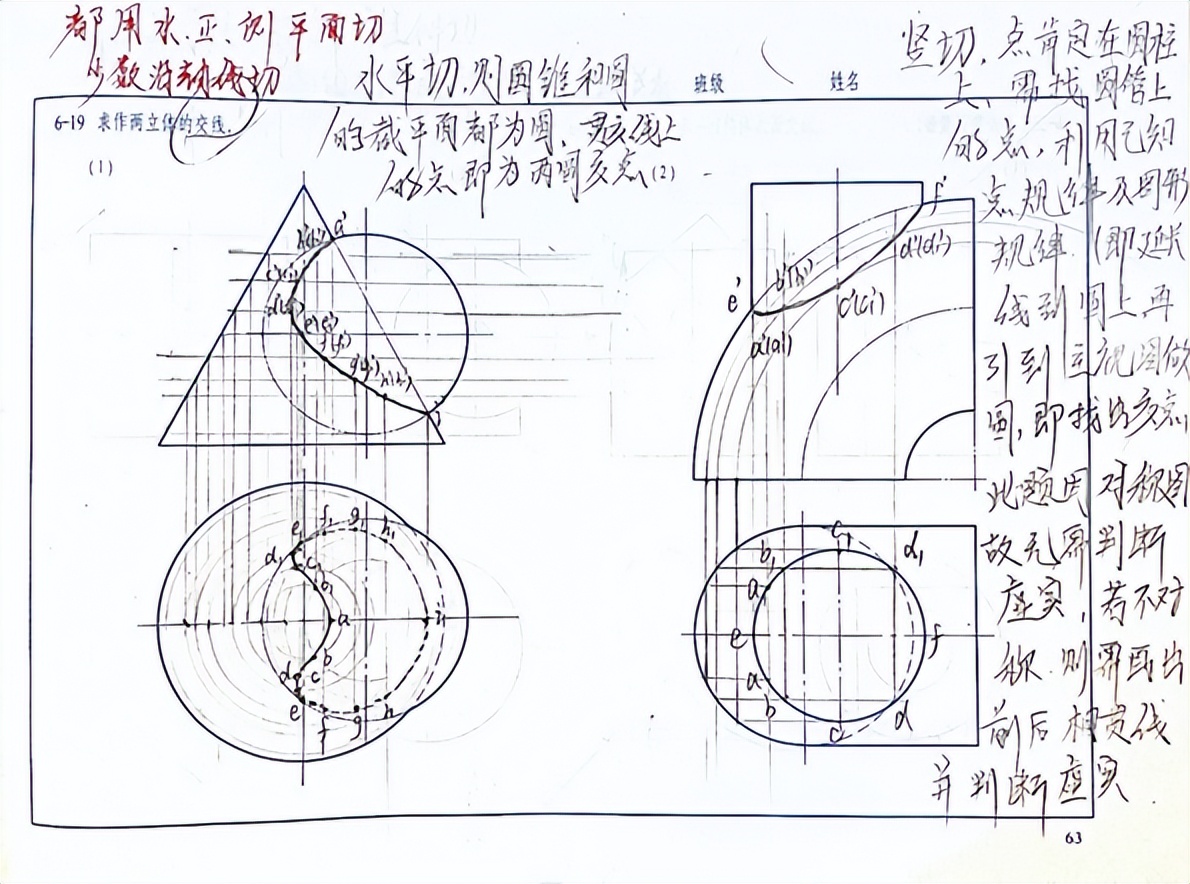 都用水.正.侧平面切
少数沿轴线切
水平切,则圆锥和圆
的截平面都为圆、贯交线上
的点即为两圆交点
班级
姓名
6-19 求作两立体的交线.
(1)
(2)
竖切,点肯定在圆柱
上、需找圆管上
的点,利用已知
点规律及图形
规律.(即延长
线到圆上再
引到主视图做
圆,即找出交点
此题因对称图
故无需判断
虚实,若不对
称.则需画出
前后相贯线
并判断虚实
a'
e'
f'
b'(b₁')
c'(c₁')
d'(d₁')
a'(a₁')
e₁
f₁
g₁
h₁
d₁
c₁
b₁
a
i₁
b
c
d
e
f
g
h
c₁
d₁
b₁
a₁
e
f
a
b
c
d
63